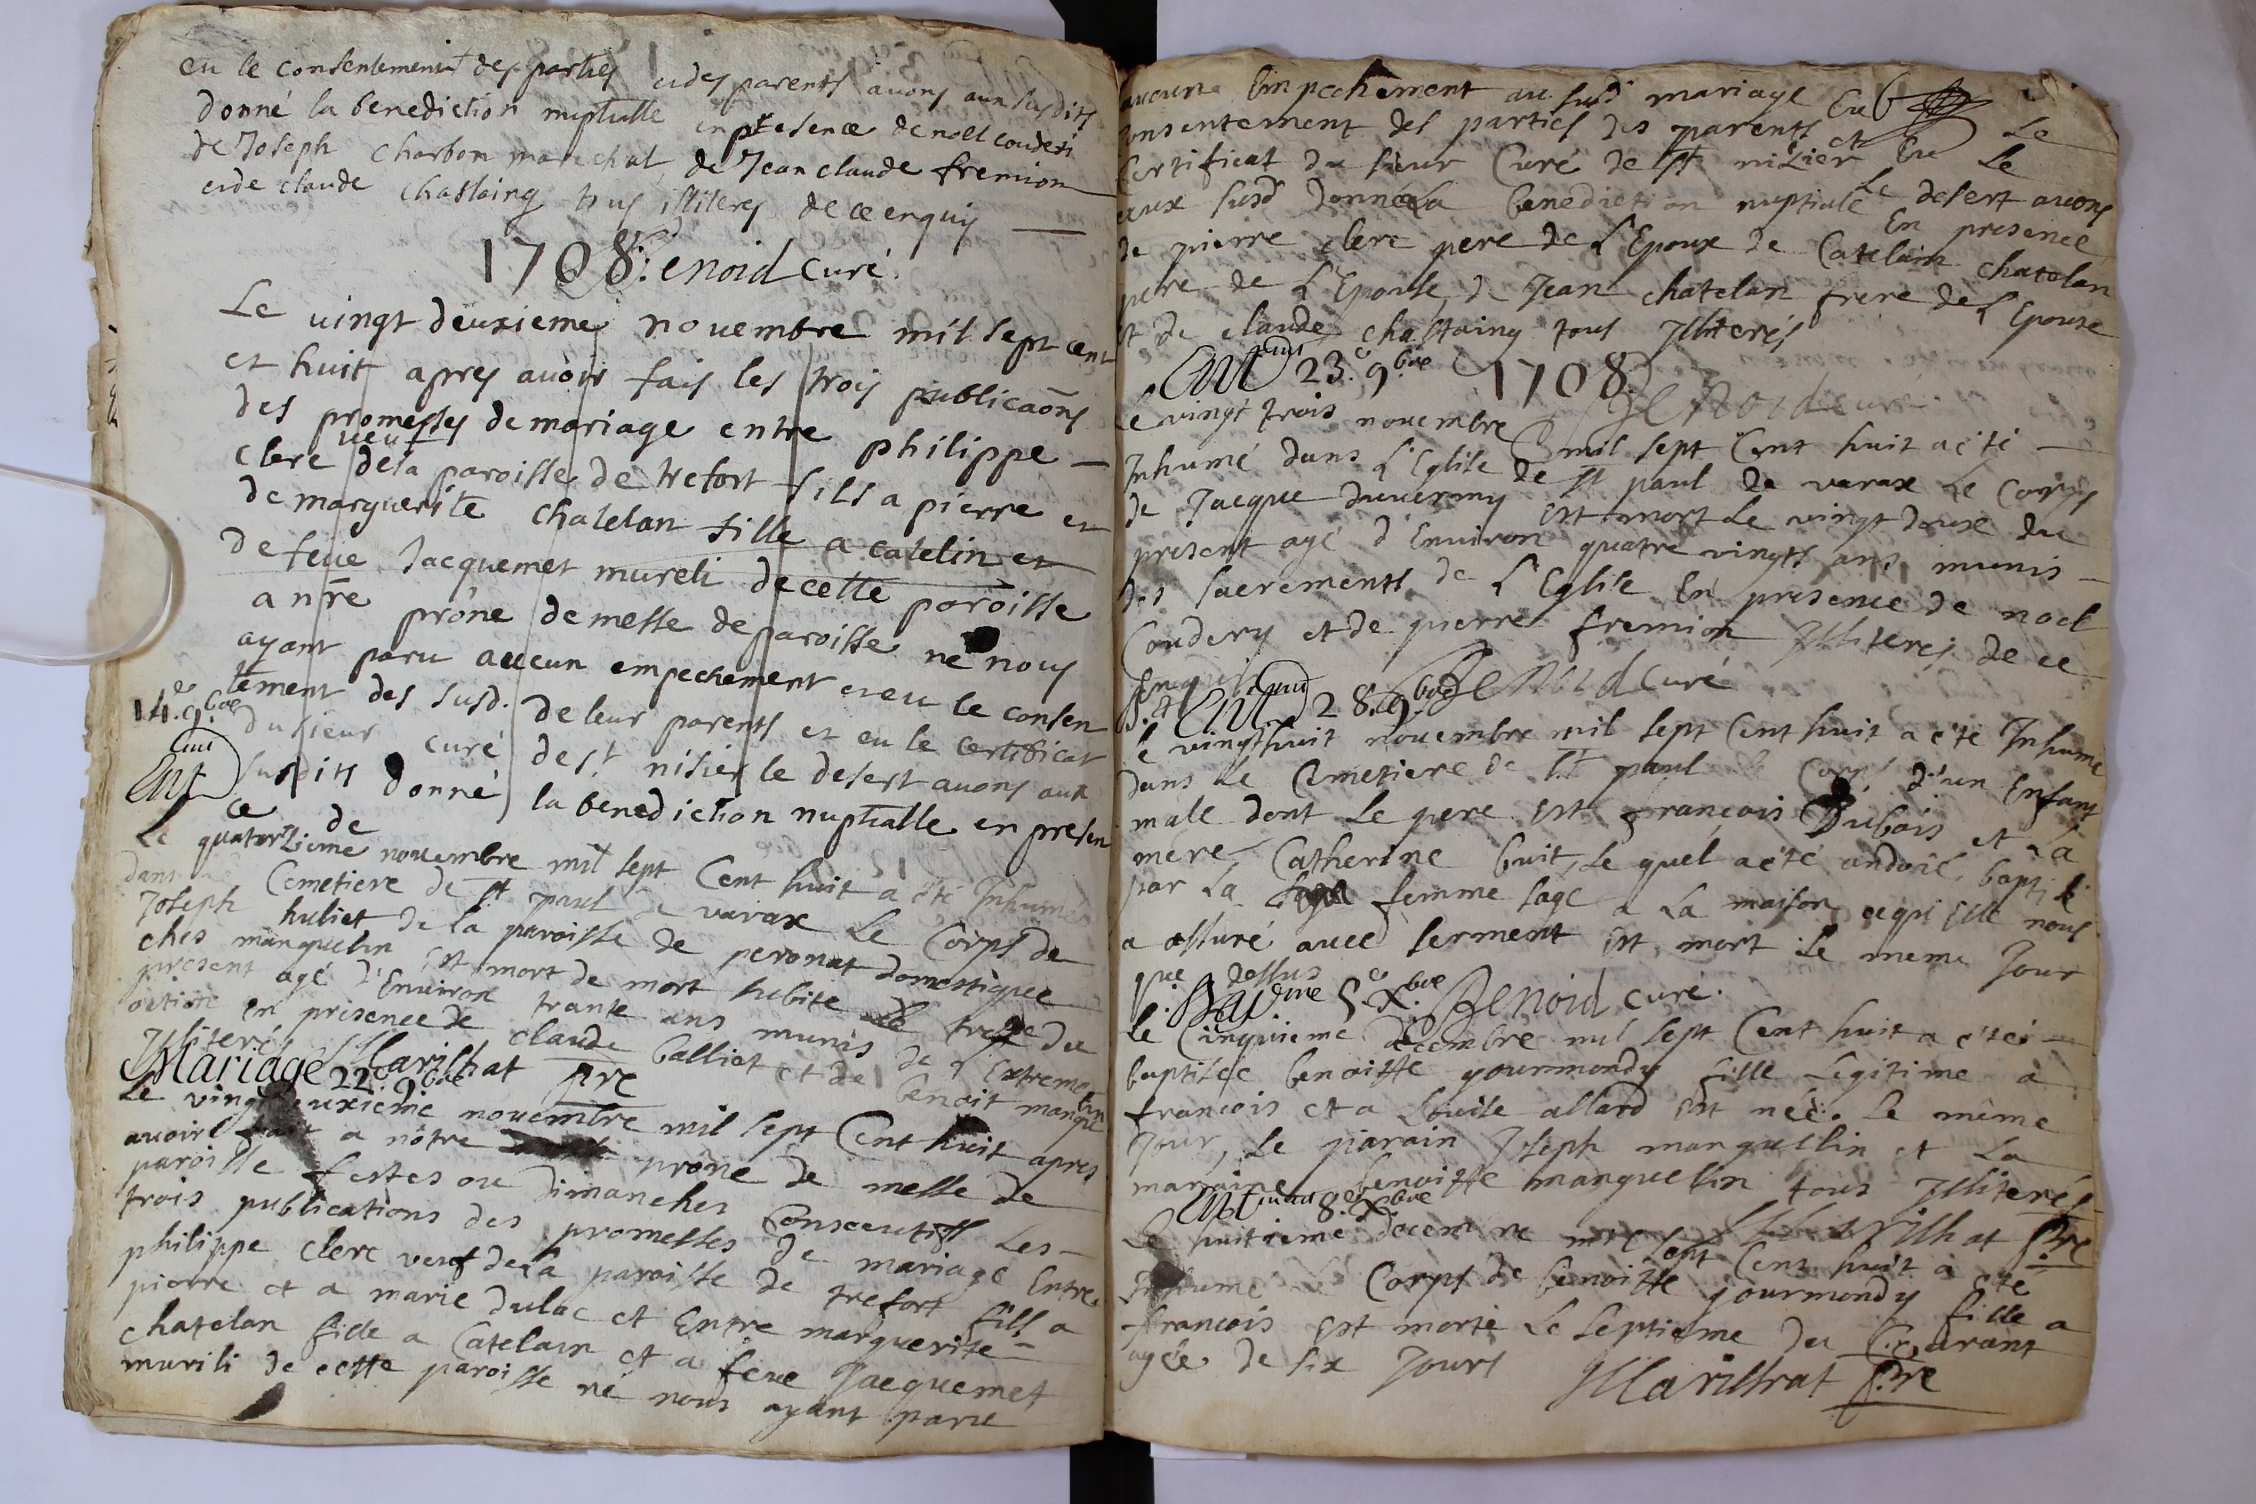 eu le consentement des parties et des parents avons aux susdits
donné la benediction nuptialle en presence de noel couderi
de Joseph charbon marechal, de Jean claude fremion
et de claude chastaing tous illiteres de ce enquis
1708. Genoid curé
Le vingt deuxieme novembre mil sept cent
et huit apres avoir fais les trois publicaõns
des promesses de mariage entre philippe
clerc veuf de la paroisse de trefort fils a pierre et
de marguerite chatelan fille a catelin et
de feue Jacquemet mureli de cette paroisse
a nr̃e prône de messe de paroisse ne nous
ayant paru aucun empechement et eu le consen
tement des susd. de leur parents et eu le certificat
du sieur curé de st nisier le desert avons aux
susdits donné la benediction nuptialle en presen
ce de
14.e 9.bre
Ent
Le quatorzieme novembre mil sept Cent huit a été Inhumé
dans Cemetiere de st paul de varax Le Corps de
Joseph huliet de la paroisse de peronat domestique
ches manguelin Est mort de mort subite le treze du
present agé d'Environ trante ans munis de l'Extreme
onction En presence de claude balliat et de benoit manguelin
Illiterés Marilhat ptre
Mariage 22.e 9bre
Le vingt deuxieme novembre mil sept Cent huit apres
avoir fait a nôtre prône de messe de
paroisse festes ou dimanches Consecutifs Les
trois publications des promesses de mariage Entre
philippe clerc veuf de la paroisse de trefort fils a
pierre et a marie dulac et Entre marguerite
chatelan fille a Catelain et a feue Jacquemet
murili de cette paroisse né nous ayant paru
aucune Empechement au susd mariage Eu Le
Consentement des parties des parents et Eu Le
Certificat du sieur Curé de st nizier Le desert avons
aux susd donné La benediction nuptiale En presence
de pierre clerc pere de L'Epoux de Catelain chatelan
pere de L'Epouse, de Jean chatelan frere de L'Epouse
et de claude chastaing tous Illiterés
Ent 23.e 9.bre 1708. Genoid curé
Le vingt trois novembre mil sept Cent huit a été
Inhumé dans L'Eglise de st paul de varax Le Corps
de Jacque duverny Est mort Le vingt deux du
present agé d'Environ quatre vingts ans munis
des sacrements de L'Eglise En presence de noel
Coudery et de pierre fremion Illiterés de ce
Enquis Genoid Curé
Ent 28.e 9.bre
Le vingt huit novembre mil sept Cent huit a été Inhumé
dans Le Cimetiere de st paul le Corps d'un Enfant
male dont Le pere Est François Dubois et La
mere Catherine buit, le quel a été andoié, baptisé
par La femme sage a La maison ce qu'Elle nous
a assuré avec serment Est mort Le meme Jour
que dessus Genoid curé.
Bap 5.e X.bre
Le Cinquieme decembre mil sept Cent huit a été
baptisée benoitte gourmondy fille Legitime a
francois et a Louise allard Est née Le même
Jour, Le parain Joseph manguellin et La
maraine benoitte manguelin tous Illiterés
Marilhat ptre
Ent 8.e Xbre
Le huitieme decembre mil sept Cent huit a été
Inhumé Le Corps de benoitte gourmondy fille a
francois Est morte Le septieme du Courant
agée de six Jours Marilhat ptre